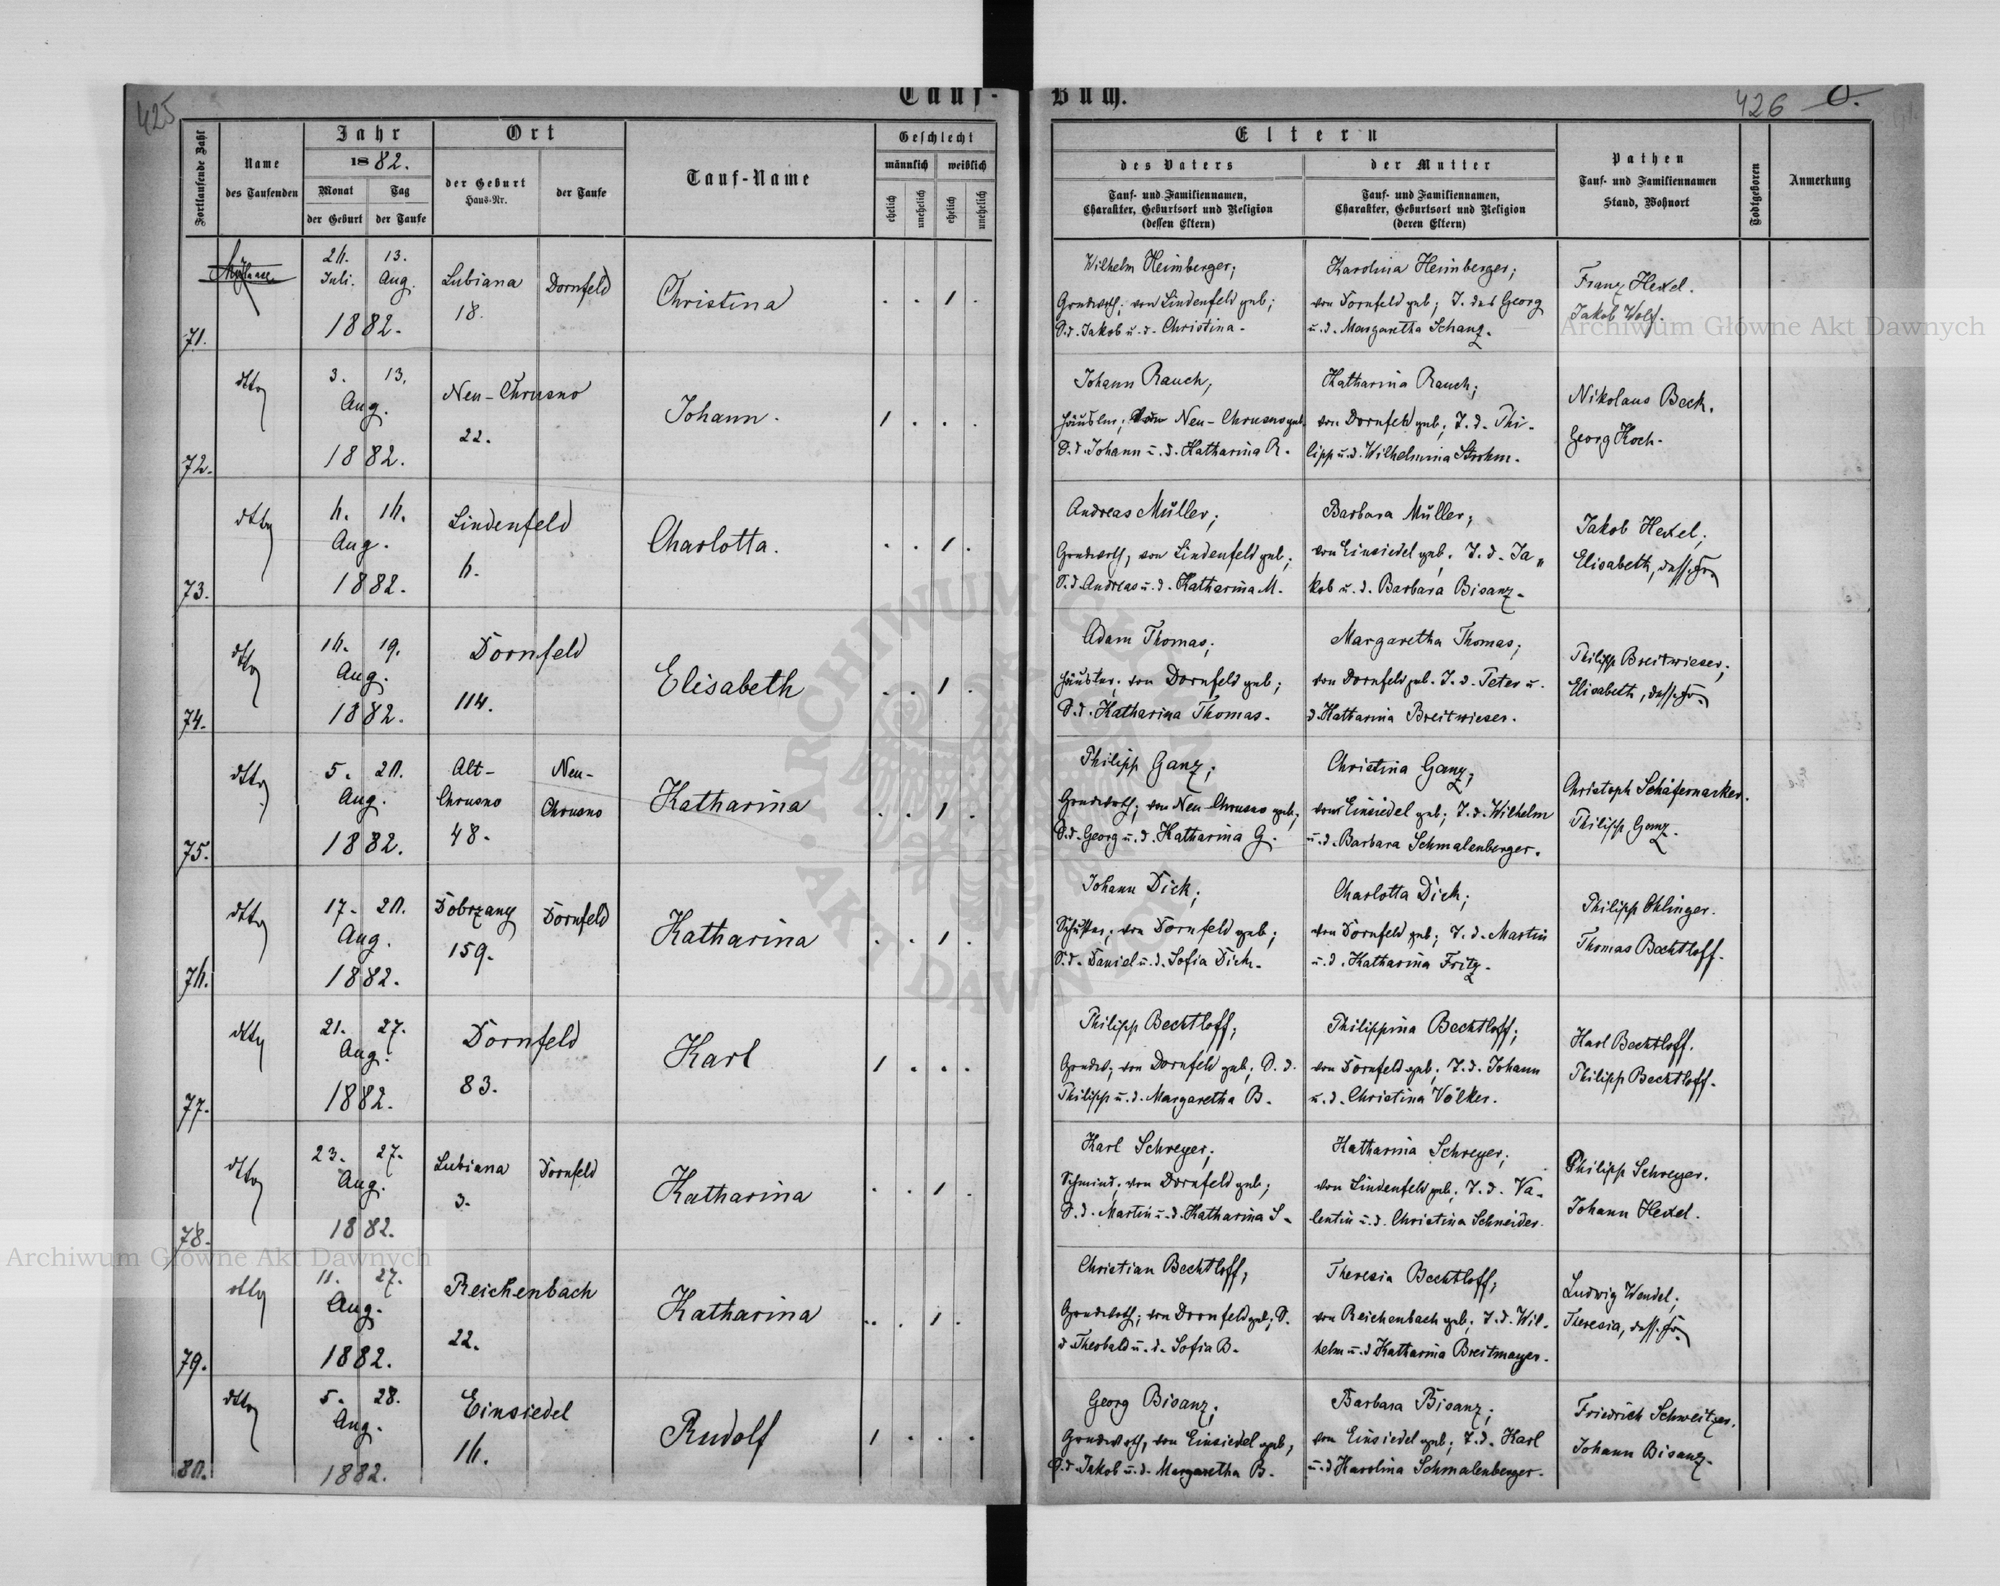 425
Tauf-
Buch.
426
Fortlaufende Zahl
Name
des Taufenden
Jahr
1882.
Monat
der Geburt
Tag
der Taufe
Ort
der Geburt
Haus-Nr.
der Taufe
Tauf-Name
Geschlecht
männlich
weiblich
ehelich
unehelich
ehelich
unehelich
Eltern
des Vaters
Tauf- und Familiennamen,
Charakter, Geburtsort und Religion
(dessen Eltern)
der Mutter
Tauf- und Familiennamen,
Charakter, Geburtsort und Religion
(deren Eltern)
Pathen
Tauf- und Familiennamen
Stand, Wohnort
Todtgeboren
Anmerkung
71.
Juli. 13. Aug.
1882.
Lubiana
18.
Dornfeld
Christina
. . 1 .
Wilhelm Heimberger;
Grundwrth; von Lindenfeld geb;
S.d. Jakob u. d. Christina.
Karolina Heimberger;
von Dornfeld geb; T. des Georg
u. d. Margaretha Schanz.
Franz Hexel.
Jakob Wolf.
72.
dtto
3. 13.
Aug.
1882.
Neu-Chrusno
22.
Johann.
1 . . .
Johann Rauch;
Häusler; Neu-Chrusno geb.
S.d. Johann u. d. Katharina R.
Katharina Rauch;
von Dornfeld geb; T. d. Phi-
lipp u. d. Wilhelmina Strohm.
Nikolaus Beck.
Georg Koch.
73.
dtto
6. 16.
Aug.
1882.
Lindenfeld
6.
Charlotta.
. . 1 .
Andreas Müller;
Grundwrth; von Lindenfeld geb;
S.d. Andreas u. d. Katharina M.
Barbara Müller;
von Einsiedel geb; T. d. Ja„
kob u. d. Barbara Bisanz.
Jakob Hexel;
Elisabeth, dess. Fr.
74.
dtto
16. 19.
Aug.
1882.
Dornfeld
114.
Elisabeth
. . 1 .
Adam Thomas;
Häusler; von Dornfeld geb;
S.d. Katharina Thomas.
Margaretha Thomas;
von Dornfeld geb. T. d. Peter u.
d. Katharina Breitwieser.
Philipp Breitwieser;
Elisabeth, dess. Fr.
75.
dtto
5. 20.
Aug.
1882.
Alt-
Chrusno
48.
Neu-
Chrusno
Katharina
. . 1 .
Philipp Ganz;
Grundwrth; von Neu-Chrusno geb;
S.d. Georg u. d. Katharina G.
Christina Ganz;
von Einsiedel geb; T. d. Wilhelm
u. d. Barbara Schmalenberger.
Christoph Schäfernarker.
Philipp Ganz.
76.
dtto
17. 20.
Aug.
1882.
Dobrzany
159.
Dornfeld
Katharina
. . 1 .
Johann Dick;
Schuster; von Dornfeld geb;
S.d. Daniel u. d. Sofia Dick.
Charlotta Dick;
von Dornfeld geb; T. d. Martin
u. d. Katharina Fritz.
Philipp Ohlinger.
Thomas Bechtloff.
77.
dtto
21. 27.
Aug.
1882.
Dornfeld
83.
Karl
1 . . .
Philipp Bechtloff;
Grundw; von Dornfeld geb; S. d.
Philipp u. d. Margaretha B.
Philippina Bechtloff;
von Dornfeld geb; T. d. Johann
u. d. Christina Völker.
Karl Bechtloff.
Philipp Bechtloff.
78.
dtto
23. 27.
Aug.
1882.
Lubiana
3.
Dornfeld
Katharina
. . 1 .
Karl Schreyer;
Schmied; von Dornfeld geb;
S.d. Martin u. d. Katharina S.
Katharina Schreyer;
von Lindenfeld geb; T. d. Va-
lentin u. d. Christina Schneider.
Philipp Schreyer.
Johann Hexel.
79.
dtto
11. 27.
Aug.
1882.
Reichenbach
22.
Katharina
. . 1 .
Christian Bechtloff;
Grundwrth; von Dornfeld geb; S.
d. Theobald u. d. Sofia B.
Theresia Bechtloff;
von Reichenbach geb; T. d. Wil-
helm u. d. Katharina Breitmayer.
Ludwig Wendel;
Theresia, dess. Fr.
80.
dtto
5. 28.
Aug.
1882.
Einsiedel
16.
Rudolf
1 . . .
Georg Bisanz;
Grundwrth; von Einsiedel geb;
S.d. Jakob u. d. Margaretha B.
Barbara Bisanz;
von Einsiedel geb; T. d. Karl
u. d. Karolina Schmalenberger.
Friedrich Schweitzer.
Johann Bisanz.
Archiwum Główne Akt Dawnych
Archiwum Główne Akt Dawnych
ARCHIWUM GŁÓWNE AKT DAWNYCH